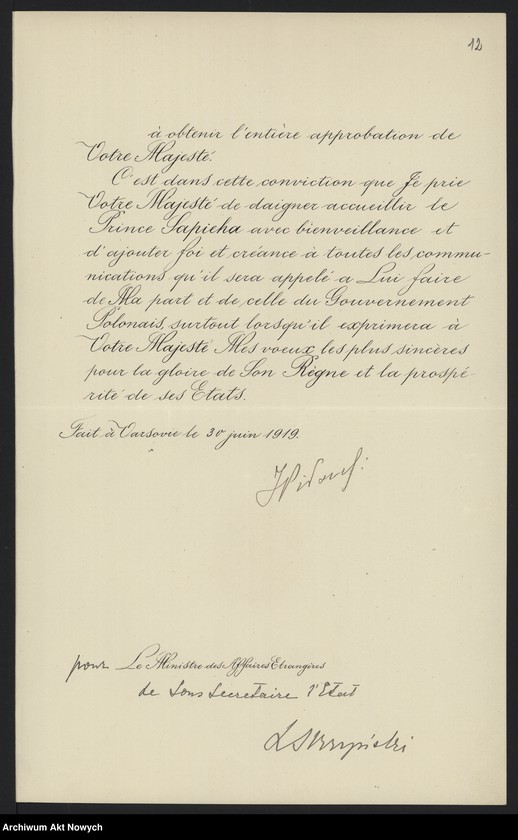 12
à obtenir l'entière approbation de
Votre Majesté.
C'est dans cette conviction que Je prie
Votre Majesté de daigner accueillir le
Prince Sapieha avec bienveillance et
d'ajouter foi et créance à toutes les commu-
nications qu'il sera appelé a Lui faire
de Ma part et de celle du Gouvernement
Polonais, surtout lorsqu'il exprimera à
Votre Majesté Mes voeux les plus sincères
pour la gloire de Son Règne et la prospé-
rité de ses Etats.
Fait à Varsovie le 30 juin 1919.
pour Le Ministre des Affaires Etrangères
Sous Secretaire d'Etat
Archiwum Akt Nowych